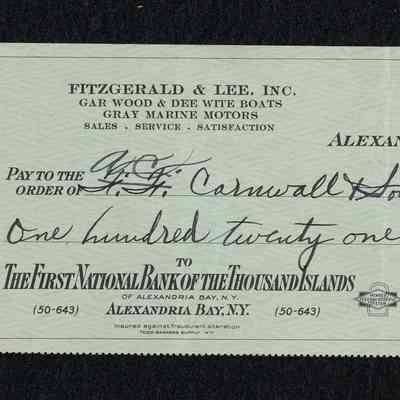 FITZGERALD & LEE, INC.
GAR WOOD & DEE WITE BOATS
GRAY MARINE MOTORS
SALES - SERVICE - SATISFACTION
ALEXAN
PAY TO THE
ORDER OF Cornwall & So
One hundred twenty one
TO
THE FIRST NATIONAL BANK OF THE THOUSAND ISLANDS
OF ALEXANDRIA BAY, N.Y.
(50-643) ALEXANDRIA BAY, N.Y. (50-643)
Insured against fraudulent alteration
TODD-BANKERS SUPPLY N.Y.